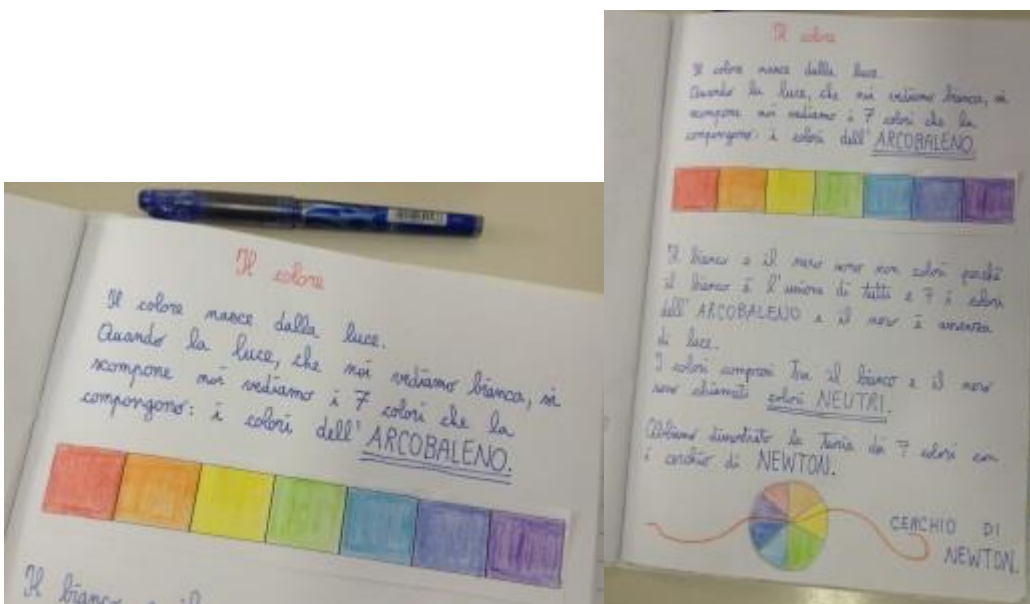 Il colore
Il colore nasce dalla luce.
Quando la luce, che noi vediamo bianca, si
scompone noi vediamo i 7 colori che la
compongono: i colori dell'ARCOBALENO.
Il bianco e il
Il colore
Il colore nasce dalla luce.
Quando la luce, che noi vediamo bianca, si
scompone noi vediamo i 7 colori che la
compongono: i colori dell'ARCOBALENO.
Il bianco e il nero sono non colori perché
il bianco è l'unione di tutti e 7 i colori
dell'ARCOBALENO e il nero è assenza
di luce.
I colori compresi tra il bianco e il nero
sono chiamati colori NEUTRI.
Abbiamo dimostrato la teoria dei 7 colori con
i cerchio di NEWTON.
CERCHIO DI
NEWTON.